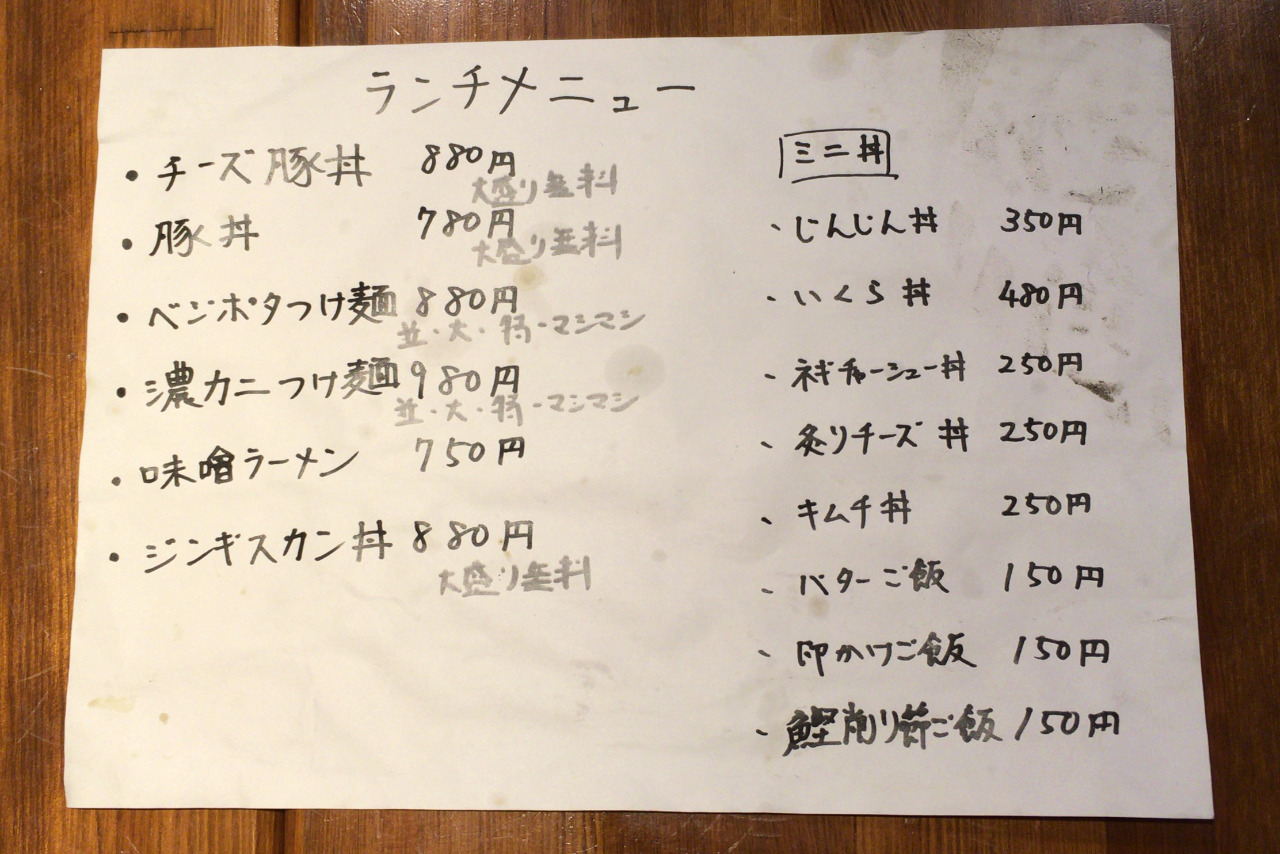 ランチメニュー
・チーズ豚丼 880円
大盛り無料
・豚丼 780円
大盛り無料
・ベジポタつけ麺 880円
並・大・特・マシマシ
・濃カニつけ麺 980円
並・大・特・マシマシ
・味噌ラーメン 750円
・ジンギスカン丼 880円
大盛り無料
ミニ丼
・じんじん丼 350円
・いくら丼 480円
・ネギチャーシュー丼 250円
・炙りチーズ丼 250円
・キムチ丼 250円
・バターご飯 150円
・卵かけご飯 150円
・鰹削り節ご飯 150円